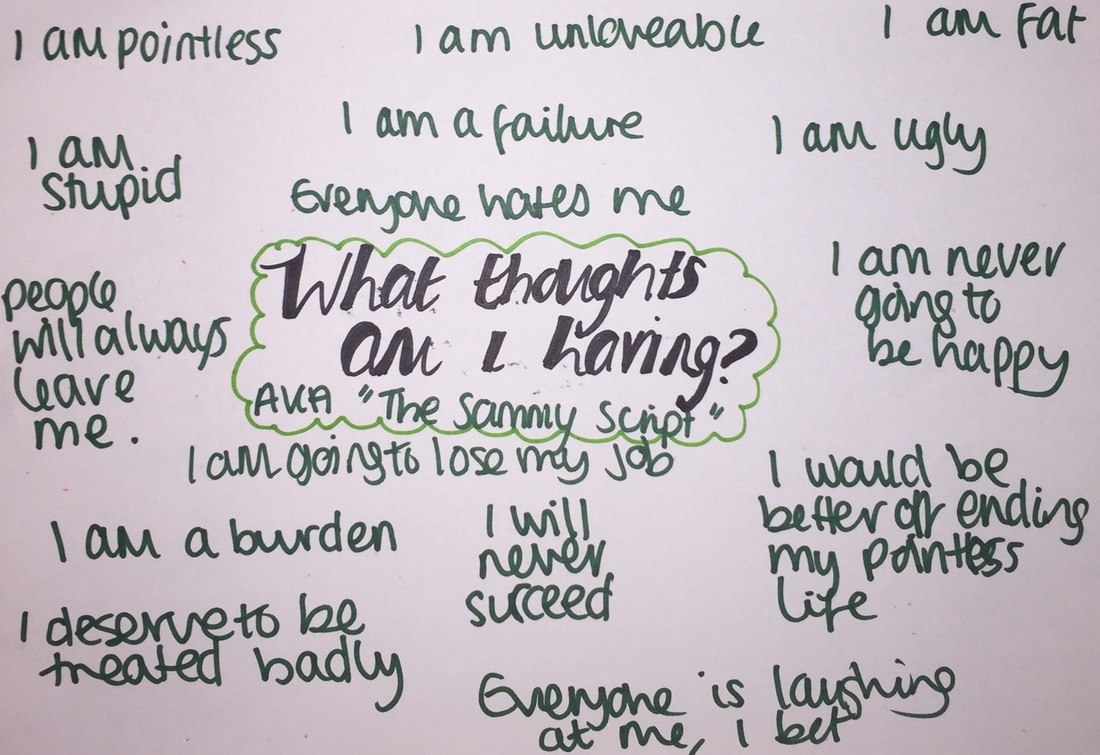 I am pointless
I am unloveable
I am fat
I am a failure
I am ugly
I am
stupid
Everyone hates me
What thoughts
am I having?
AKA "The Sammy Script"
people
will always
leave
me.
I am never
going to
be happy
I am going to lose my job
I am a burden
I will
never
succeed
I would be
better off ending
my pointless
life
I deserve to be
treated badly
Everyone is laughing
at me, I bet